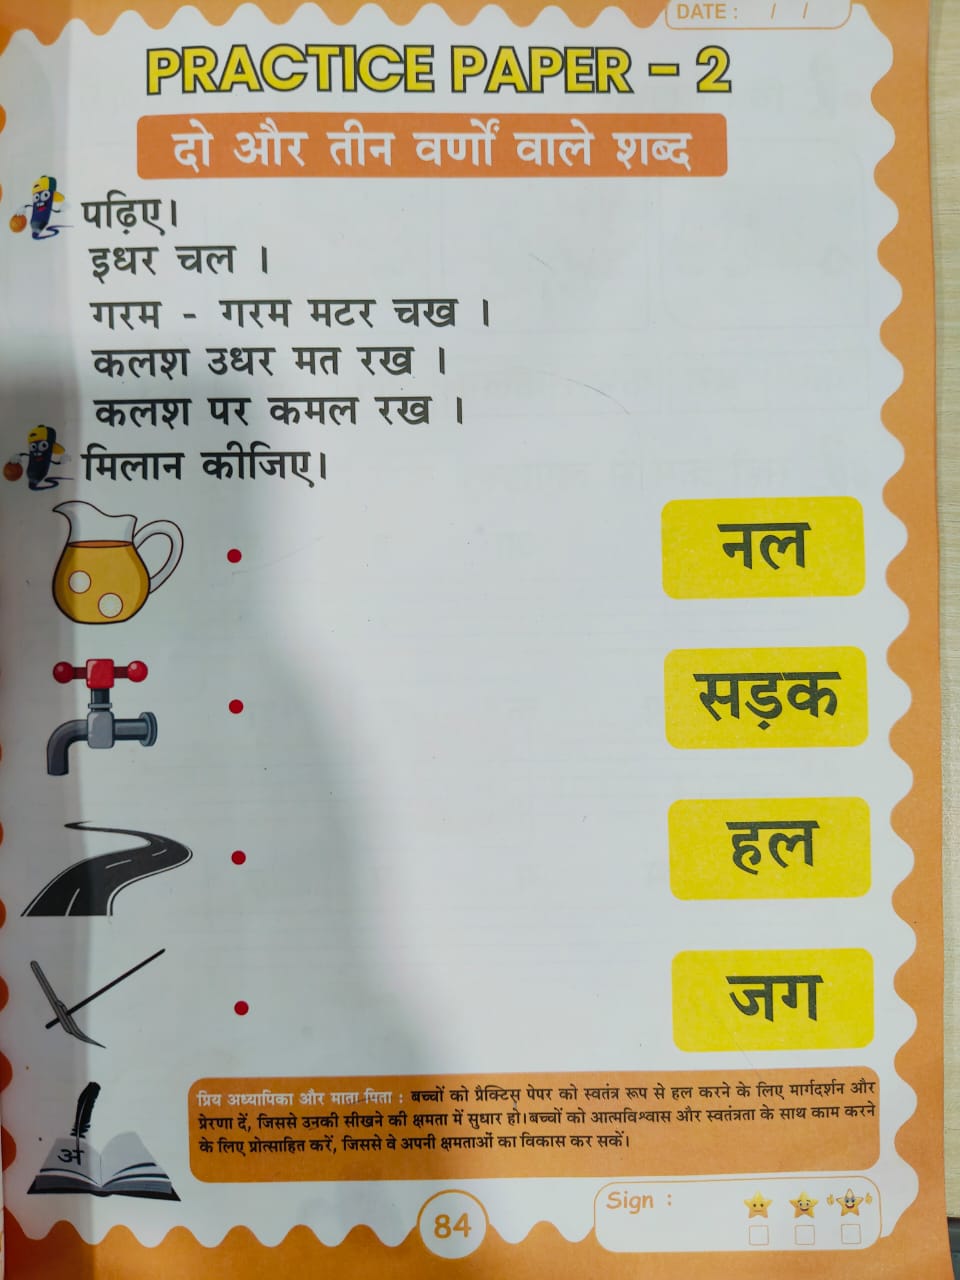 DATE : / /
PRACTICE PAPER - 2
दो और तीन वर्णों वाले शब्द
पढ़िए।
इधर चल ।
गरम - गरम मटर चख ।
कलश उधर मत रख ।
कलश पर कमल रख ।
मिलान कीजिए।
नल
सड़क
हल
जग
प्रिय अध्यापिका और माता पिता : बच्चों को प्रैक्टिस पेपर को स्वतंत्र रूप से हल करने के लिए मार्गदर्शन और
प्रेरणा दें, जिससे उनकी सीखने की क्षमता में सुधार हो।बच्चों को आत्मविश्वास और स्वतंत्रता के साथ काम करने
के लिए प्रोत्साहित करें, जिससे वे अपनी क्षमताओं का विकास कर सकें।
अ
Sign :
84